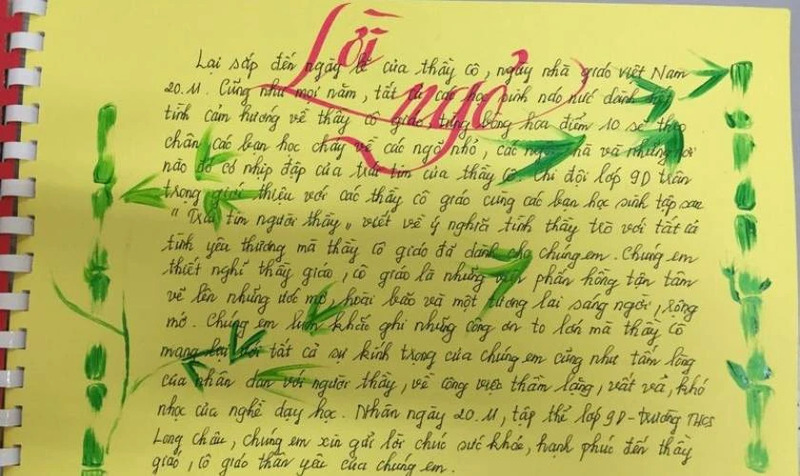 Lời ngỏ
Lại sắp đến ngày lễ của thầy cô, ngày nhà giáo việt Nam
20.11. Cũng như mọi năm, tất cả các học sinh nao nức dành
tình cảm hướng về thầy cô giáo, từng bông hoa điểm 10 sẽ theo
chân các bạn học chảy về các ngõ nhỏ, các ngôi nhà và những nơi
nào đó có nhịp đập của trái tim của thầy cô. Chi đội lớp 9D trân
trọng giới thiệu với các thầy cô giáo cùng các bạn học sinh tập san
" Trái tim người thầy " viết về ý nghĩa tình thầy trò với tất cả
tình yêu thương mà thầy cô giáo đã dành cho chúng em. Chúng em
thiết nghĩ thầy giáo, cô giáo là những viên phấn hồng tận tâm
vẽ lên những ước mơ, hoài bão và một tương lai sáng ngời, rộng
mở. Chúng em luôn khắc ghi những công ơn to lớn mà thầy cô
mang lại với tất cả sự kính trọng của chúng em cũng như tấm lòng
của nhân dân với người thầy, về công việc thầm lặng, vất vả, khó
nhọc của nghề dạy học. Nhân ngày 20.11, tập thể lớp 9D - trường THCS
Long Châu, chúng em xin gửi lời chúc sức khỏe, hạnh phúc đến thầy
giáo, cô giáo thân yêu của chúng em.